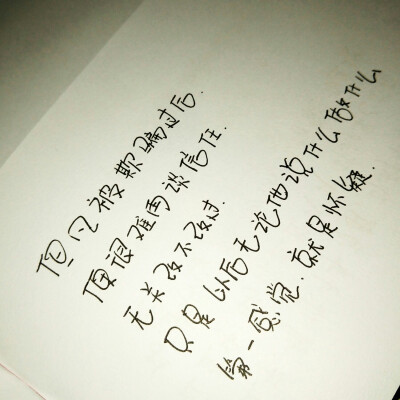 但凡被欺骗过后.
便很难再谈信任.
无关改不改过.
只是以后无论他说什么做什么
第一感觉.就是怀疑.